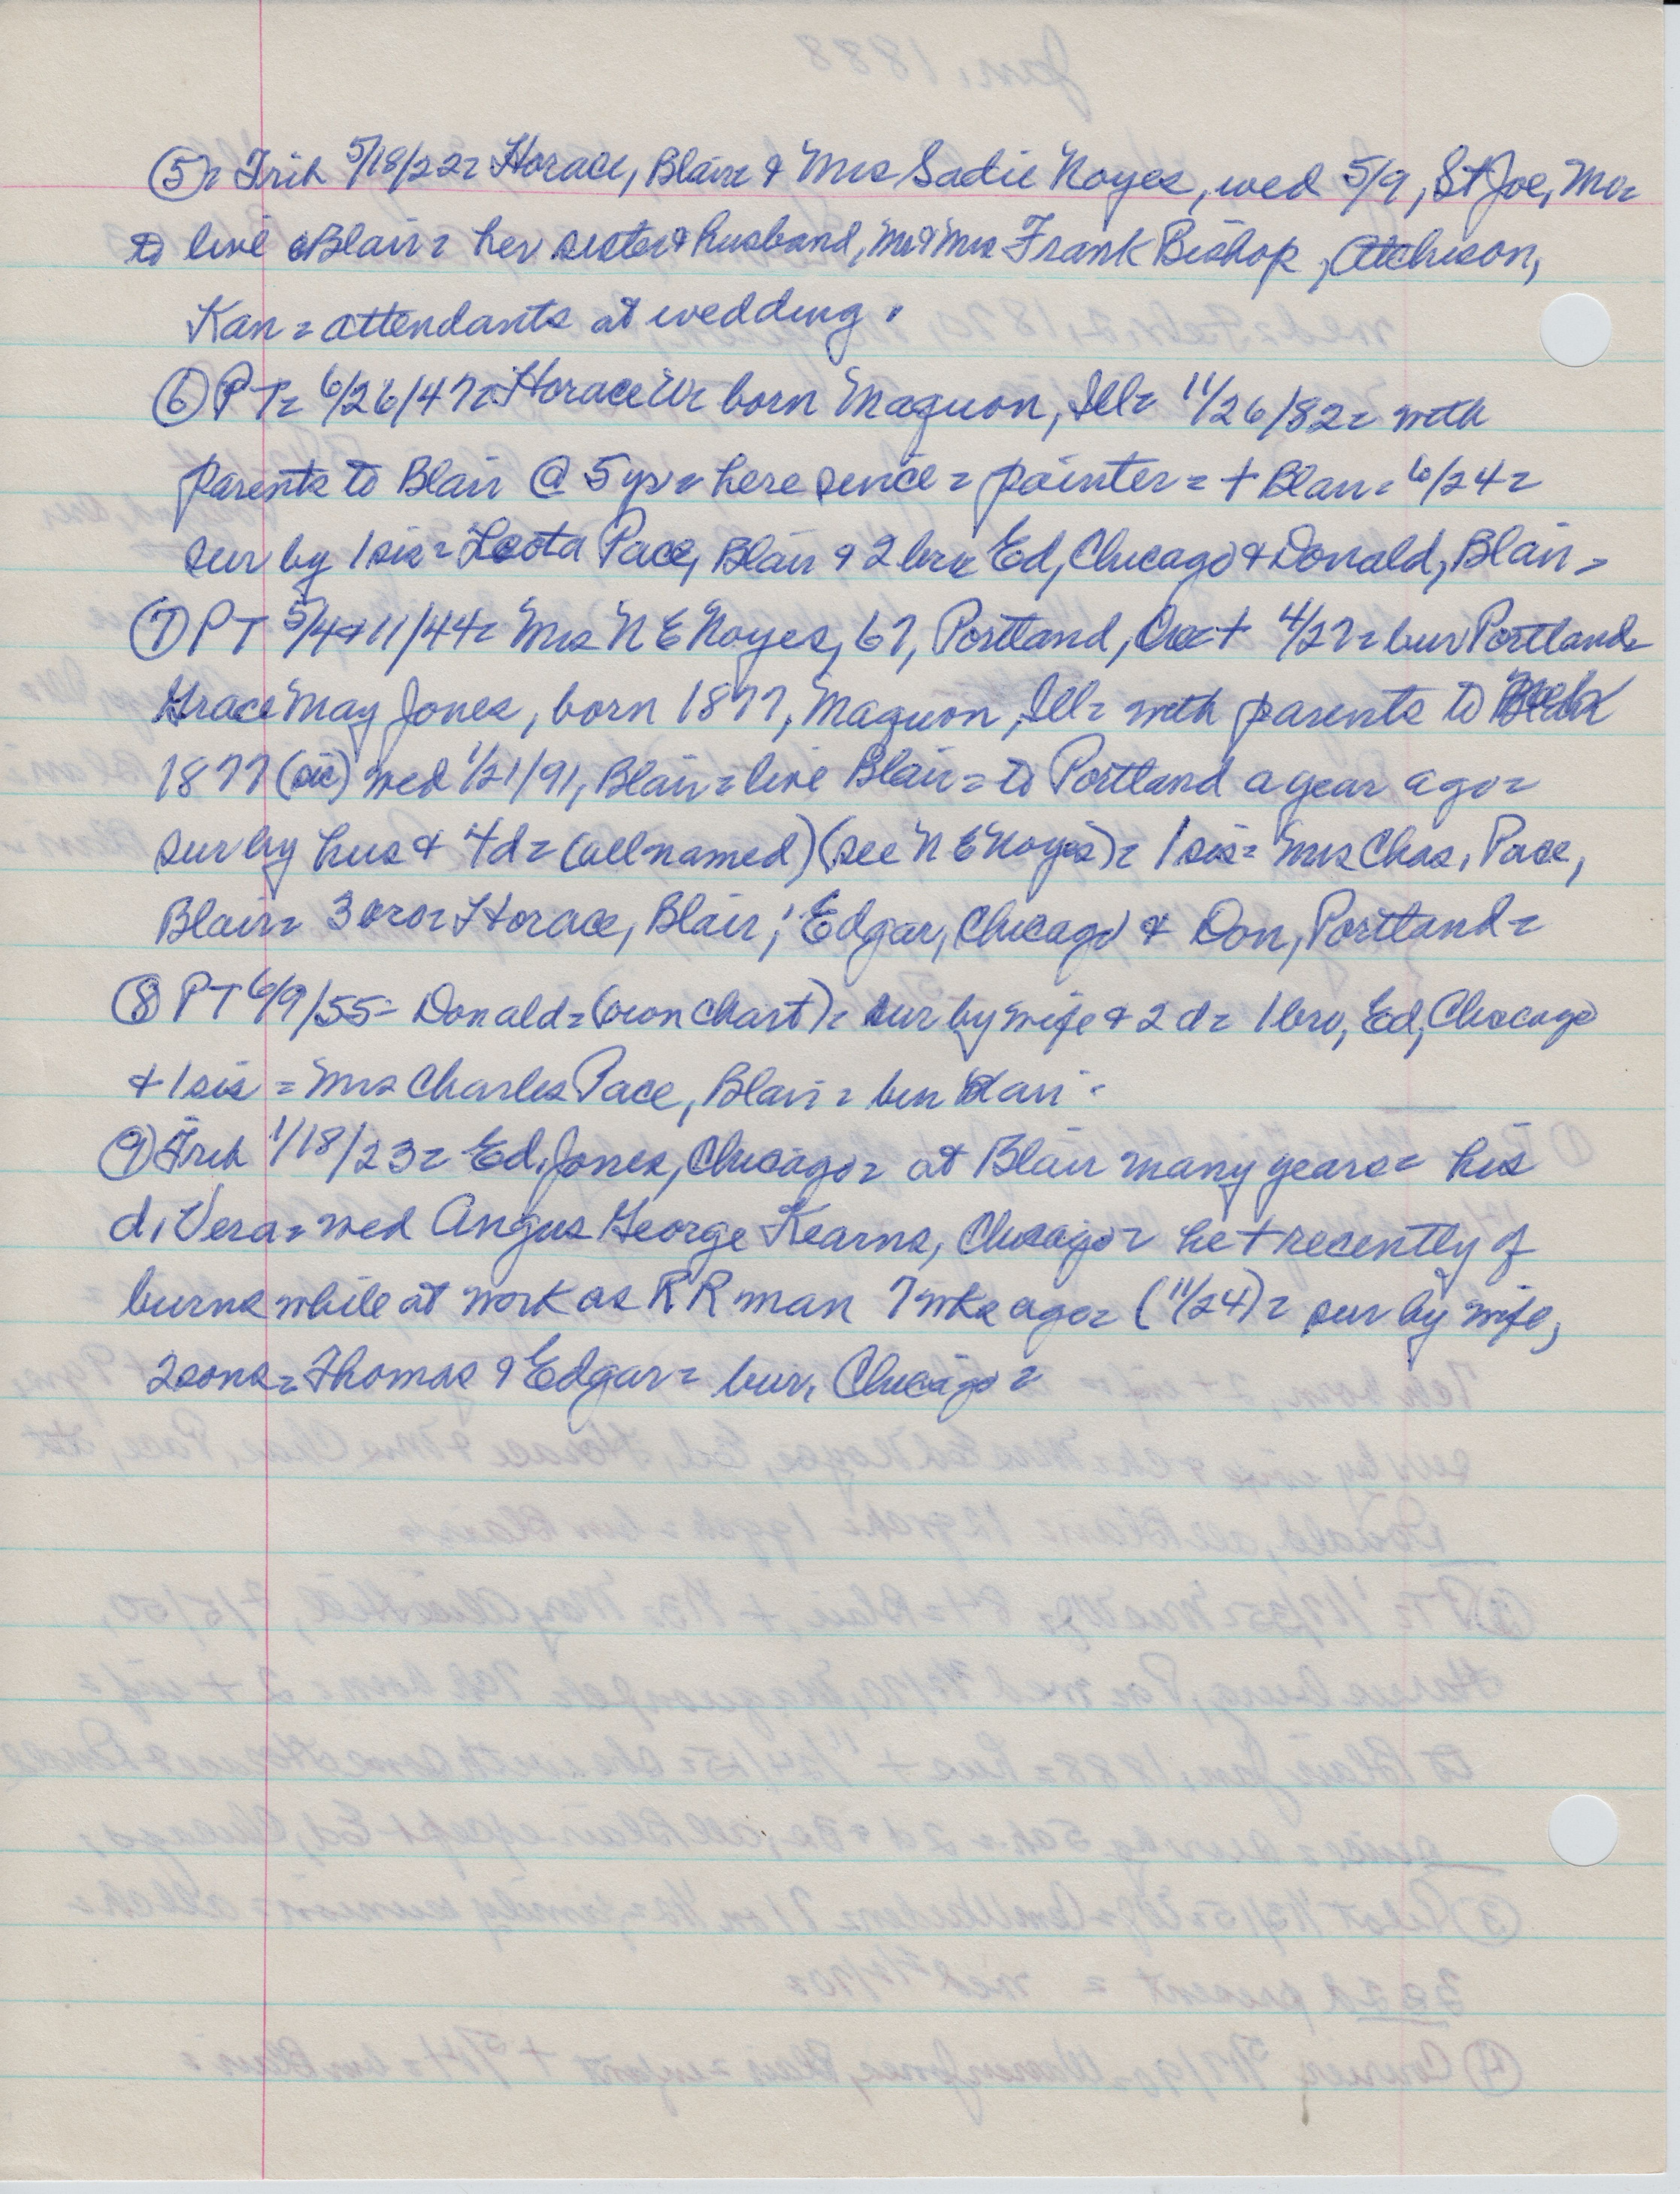 ⑤= Trib 5/18/22= Horace, Blair & Mrs Sadie Noyes, wed 5/9, St Joe, Mo=
to live @Blair= her sister & husband, Mr & Mrs Frank Bishop, Atchison,
Kan = attendants at wedding.
⑥ PT= 6/26/47= Horace W= born Maquon, Ill= 11/26/82= with
parents to Blair @ 5 yrs= here since = painter = + Blair= 6/24=
sur by 1 sis= Leota Pace, Blair & 2 bro= Ed, Chicago & Donald, Blair=
⑦ PT 5/4&11/44= Mrs N E Noyes, 67, Portland, Ore + 4/27= bur Portland=
Grace May Jones, born 1877, Maquon, Ill= with parents to Neb
1877 (sic) wed 1/21/91, Blair= live Blair= to Portland a year ago=
sur by hus & 4d= (all named) (see N E Noyes)= 1 sis= Mrs Chas. Pace,
Blair= 3 bro= Horace, Blair; Edgar, Chicago & Don, Portland=
⑧ PT 6/9/55= Donald= (own chart)= sur by wife & 2 d= 1 bro, Ed, Chicago
& 1 sis = Mrs Charles Pace, Blair= bur Blair.
⑨ Trib 1/18/23= Ed. Jones, Chicago= at Blair many years= his
d. Vera= wed Angus George Kearns, Chicago= he + recently of
burns while at work as RR man 7 wks ago= (11/24)= sur by wife,
2 sons= Thomas & Edgar= bur. Chicago=